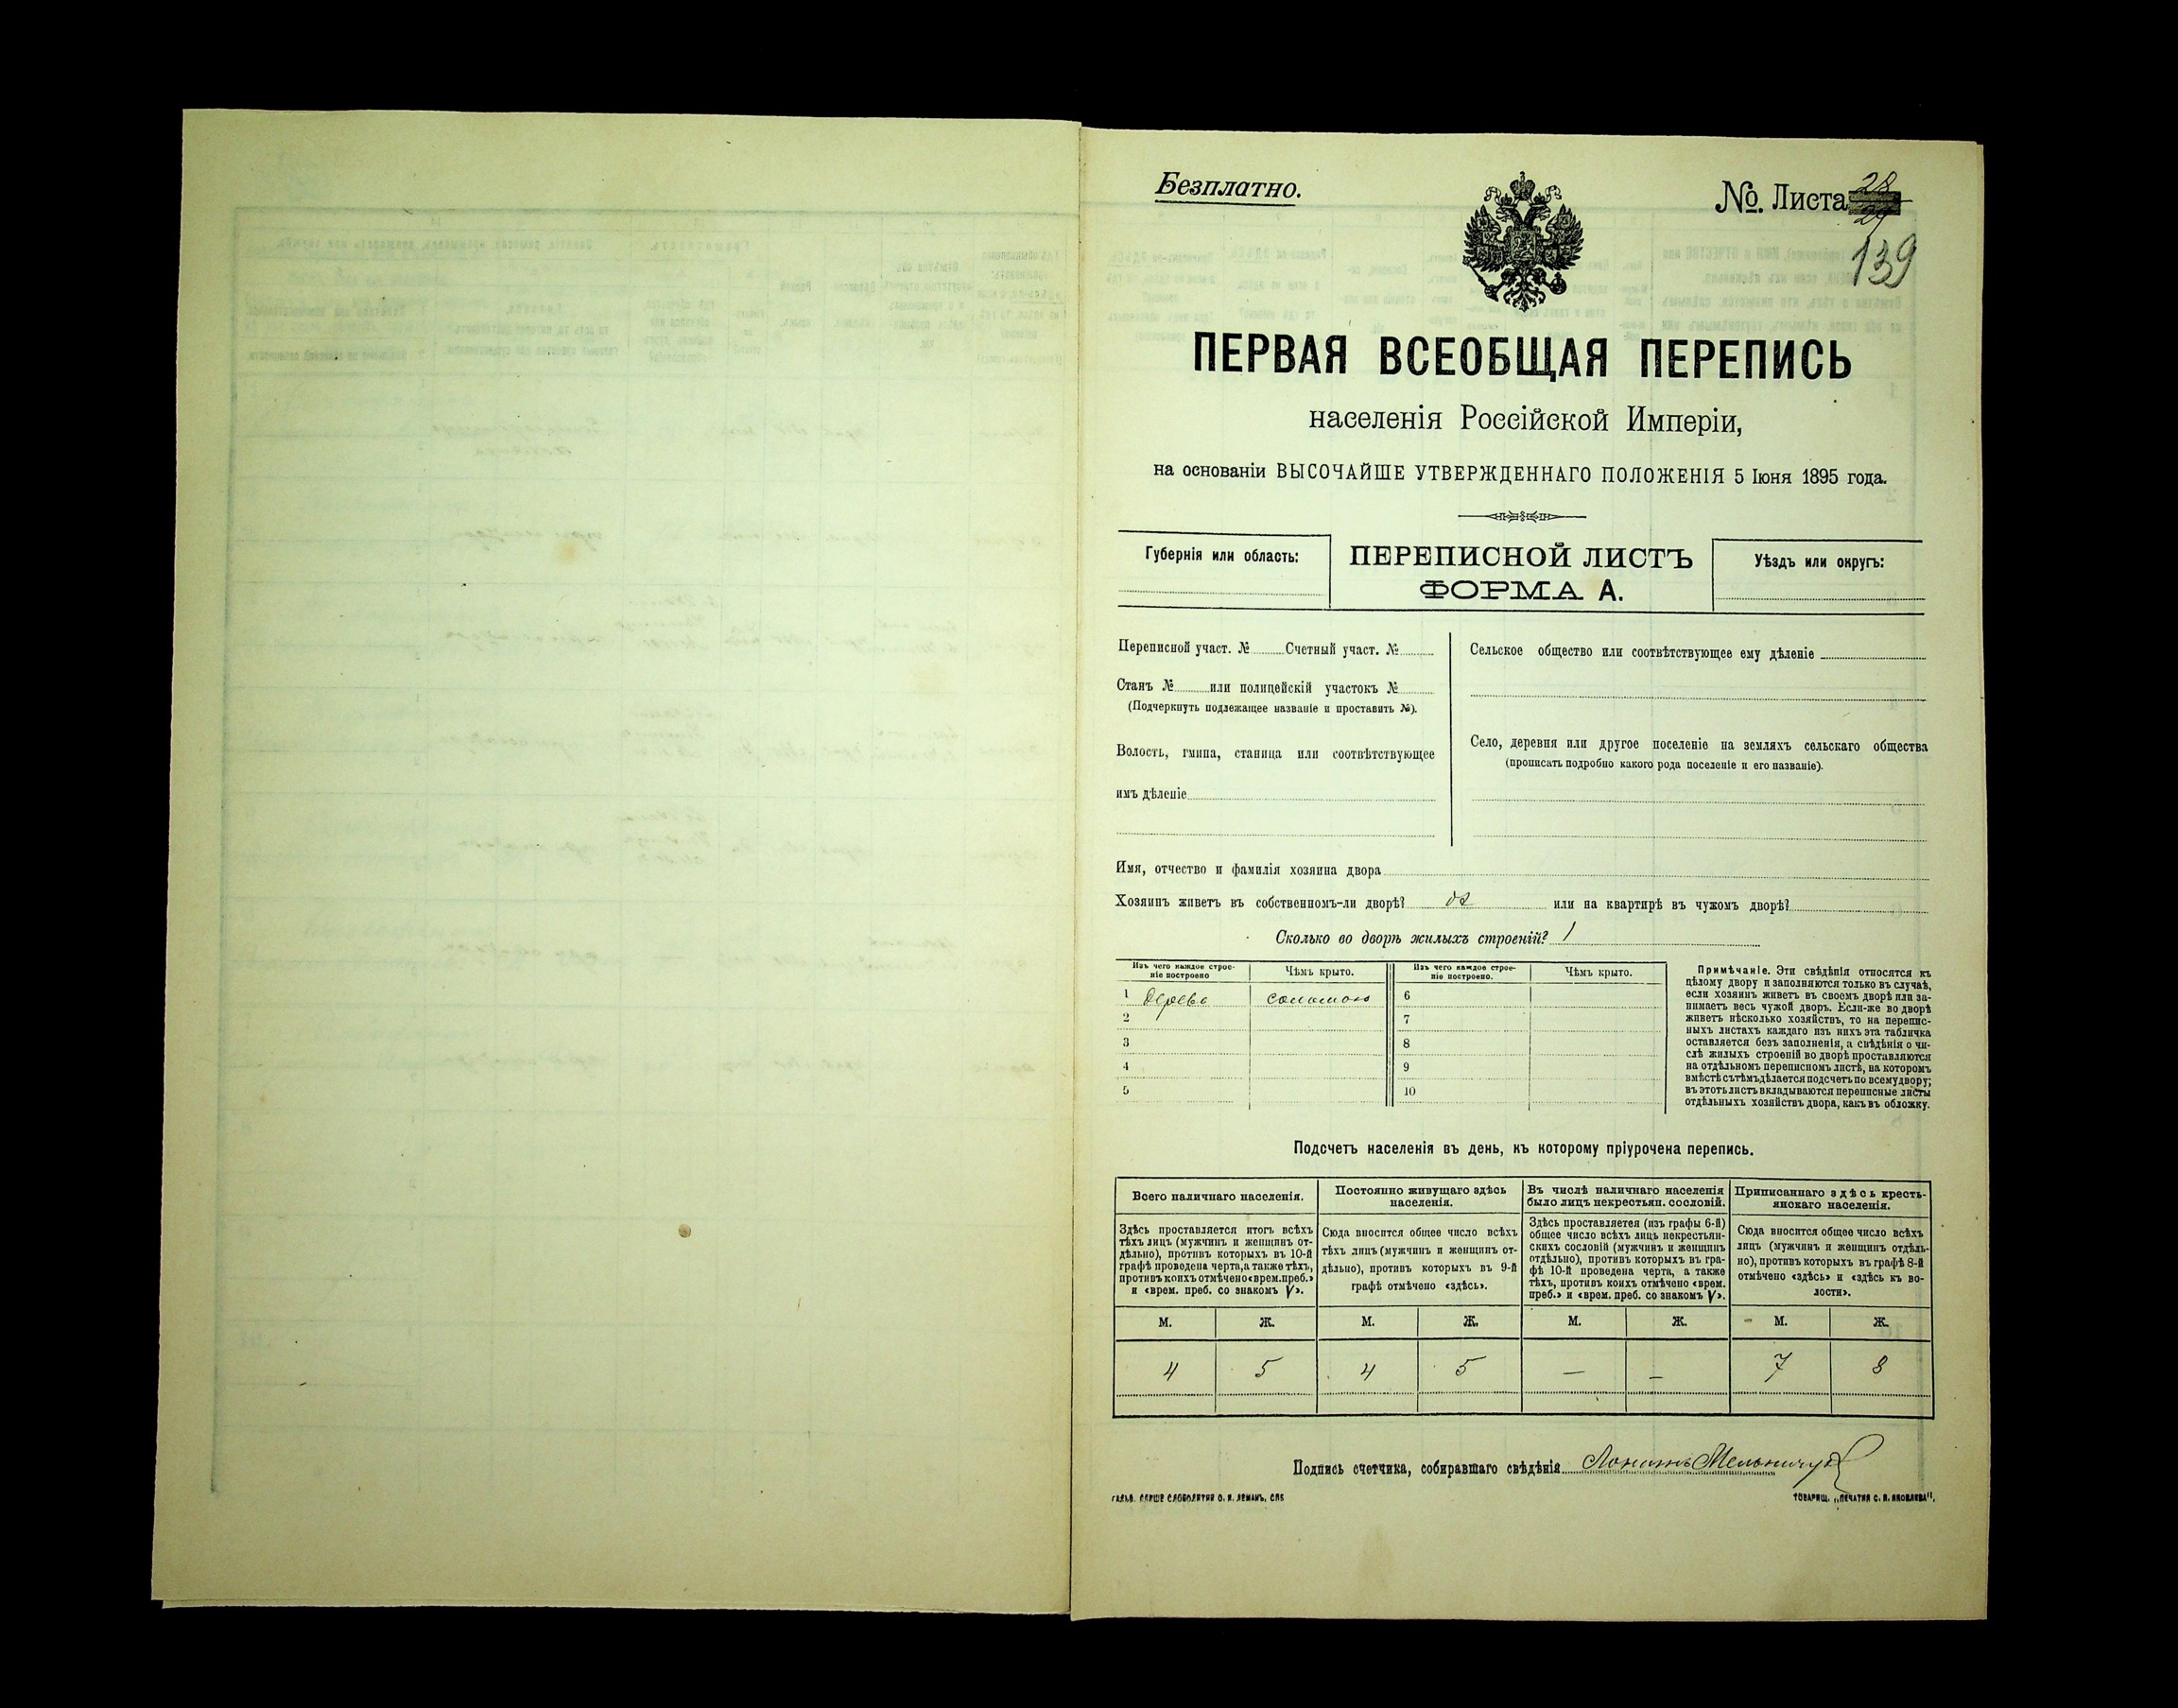 Безплатно.
№. Листа 28
29
139
ПЕРВАЯ ВСЕОБЩАЯ ПЕРЕПИСЬ
населенія Россійской Имперіи,
на основаніи ВЫСОЧАЙШЕ УТВЕРЖДЕННАГО ПОЛОЖЕНІЯ 5 Іюня 1895 года.
Губернія или область:
ПЕРЕПИСНОЙ ЛИСТЪ
ФОРМА А.
Уѣздъ или округъ:
Переписной участ. № Счетный участ. №
Станъ № или полицейскій участокъ №
(Подчеркнуть подлежащее названіе и проставить №).
Волость, гмина, станица или соотвѣтствующее
имъ дѣленіе
Сельское общество или соотвѣтствующее ему дѣленіе
Село, деревня или другое поселеніе на земляхъ сельскаго общества
(прописать подробно какого рода поселеніе и его названіе).
Имя, отчество и фамилія хозяина двора
Хозяинъ живетъ въ собственномъ-ли дворѣ? да или на квартирѣ въ чужомъ дворѣ?
Сколько во дворѣ жилыхъ строеній? 1
Изъ чего каждое строе-
ніе построено
Чѣмъ крыто.
Изъ чего каждое строе-
ніе построено.
Чѣмъ крыто.
1 дерева соломою 6
2 7
3 8
4 9
5 10
Примѣчаніе. Эти свѣдѣнія относятся къ
цѣлому двору и заполняются только въ случаѣ,
если хозяинъ живетъ въ своемъ дворѣ или за-
нимаетъ весь чужой дворъ. Если-же во дворѣ
живетъ нѣсколько хозяйствъ, то на перепис-
ныхъ листахъ каждаго изъ нихъ эта табличка
оставляется безъ заполненія, а свѣдѣнія о чи-
слѣ жилыхъ строеній во дворѣ проставляются
на отдѣльномъ переписномъ листѣ, на которомъ
вмѣстѣ съ тѣмъ дѣлается подсчетъ по всему двору;
въ этотъ листъ вкладываются переписные листы
отдѣльныхъ хозяйствъ двора, какъ въ обложку.
Подсчетъ населенія въ день, къ которому пріурочена перепись.
Всего наличнаго населенія.
Здѣсь проставляется итогъ всѣхъ
тѣхъ лицъ (мужчинъ и женщинъ от-
дѣльно), противъ которыхъ въ 10-й
графѣ проведена черта, а также тѣхъ,
противъ коихъ отмѣчено «врем. преб.»
и «врем. преб. со знакомъ V».
Постоянно живущаго здѣсь
населенія.
Сюда вносится общее число всѣхъ
тѣхъ лицъ (мужчинъ и женщинъ от-
дѣльно), противъ которыхъ въ 9-й
графѣ отмѣчено «здѣсь».
Въ числѣ наличнаго населенія
было лицъ некрестьян. сословій.
Здѣсь проставляется (изъ графы 6-й)
общее число всѣхъ лицъ некрестьян-
скихъ сословій (мужчинъ и женщинъ
отдѣльно), противъ которыхъ въ гра-
фѣ 10-й проведена черта, а также
тѣхъ, противъ коихъ отмѣчено «врем.
преб.» и «врем. преб. со знакомъ V».
Приписаннаго здѣсь кресть-
янскаго населенія.
Сюда вносится общее число всѣхъ
лицъ (мужчинъ и женщинъ отдѣль-
но), противъ которыхъ въ графѣ 8-й
отмѣчено «здѣсь» и «здѣсь къ во-
лости».
М. Ж. М. Ж. М. Ж. М. Ж.
4 5 4 5 — — 7 8
Подпись счетчика, собиравшаго свѣдѣнія Мельничук
ТОВАРИЩ. „ПЕЧАТНЯ С. П. ЯКОВЛЕВА“,